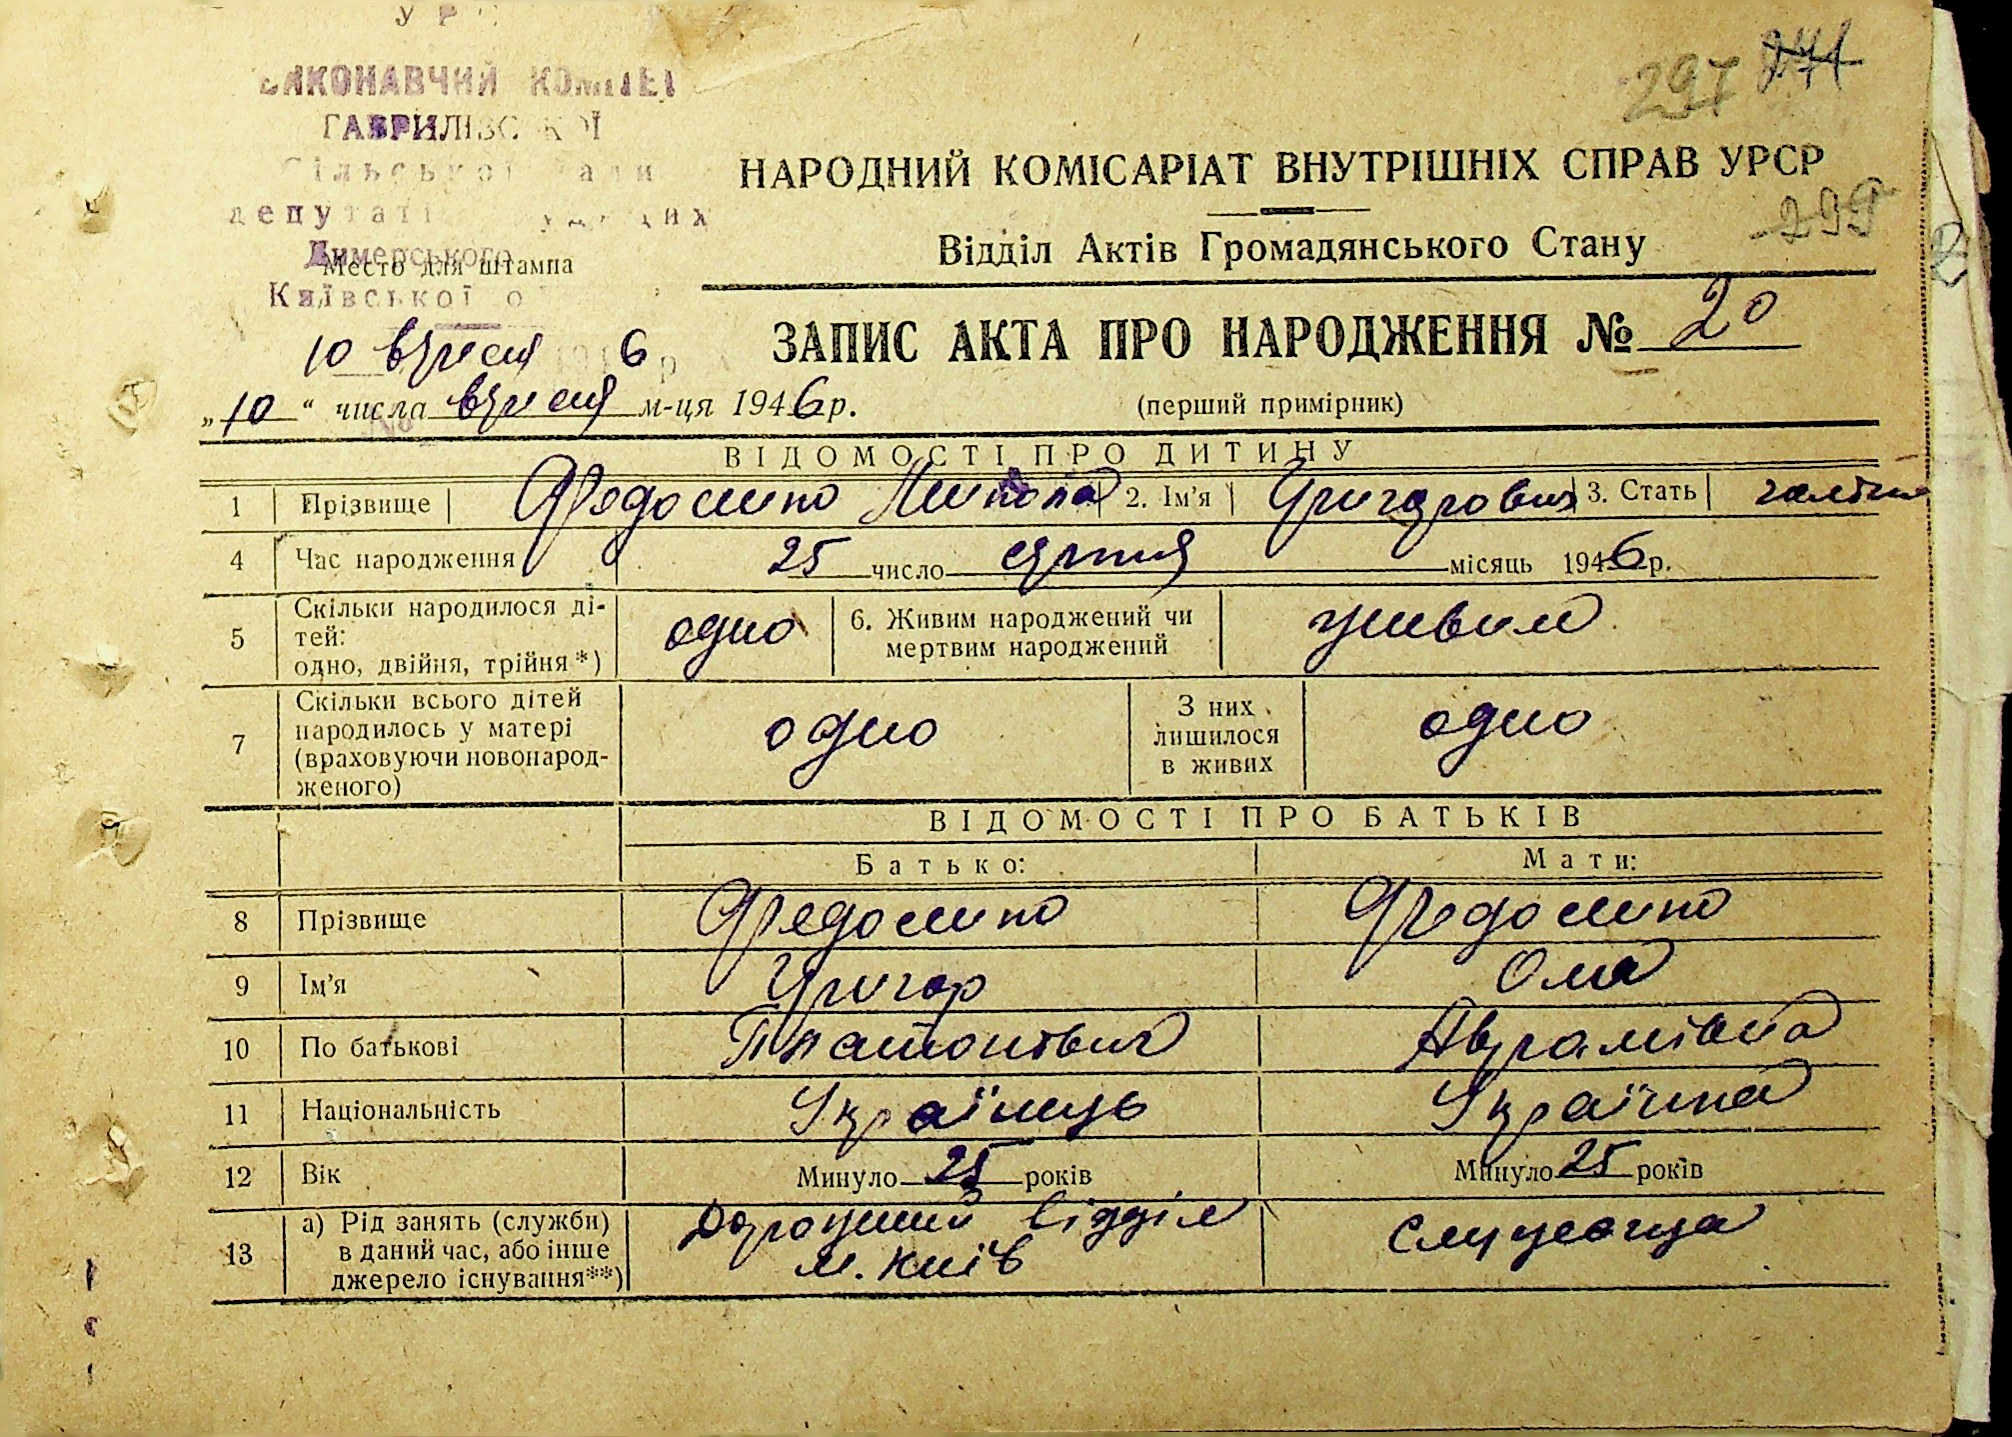 УР
ВИКОНАВЧИЙ КОМІТЕТ
ГАВРИЛІВСЬКОЇ
Сільської Ради
депутатів трудящих
Димерського
Место для штампа
Київської о
10 вересня 1946 р
297 271
299
НАРОДНИЙ КОМІСАРІАТ ВНУТРІШНІХ СПРАВ УРСР
Відділ Актів Громадянського Стану
ЗАПИС АКТА ПРО НАРОДЖЕННЯ № 20
„10“ числа вересня м-ця 1946 р.
(перший примірник)
ВІДОМОСТІ ПРО ДИТИНУ
1 Прізвище Федосенко Микола 2. Ім'я Григорович 3. Стать
4 Час народження 25 число серпня місяць 1946 р.
5 Скільки народилося ді-
тей:
одно, двійня, трійня*) одно 6. Живим народжений чи
мертвим народжений живим
7 Скільки всього дітей
народилось у матері
(враховуючи новонарод-
женого) одно З них
лишилося
в живих одно
ВІДОМОСТІ ПРО БАТЬКІВ
Батько: Мати:
8 Прізвище Федосенко Федосенко
9 Ім'я Григор Ола
10 По батькові Платонович Аврамівна
11 Національність Українець Українка
12 Вік Минуло 25 років Минуло 25 років
13 а) Рід занять (служби)
в даний час, або інше
джерело існування**) Дорожний відділ
м. Київ